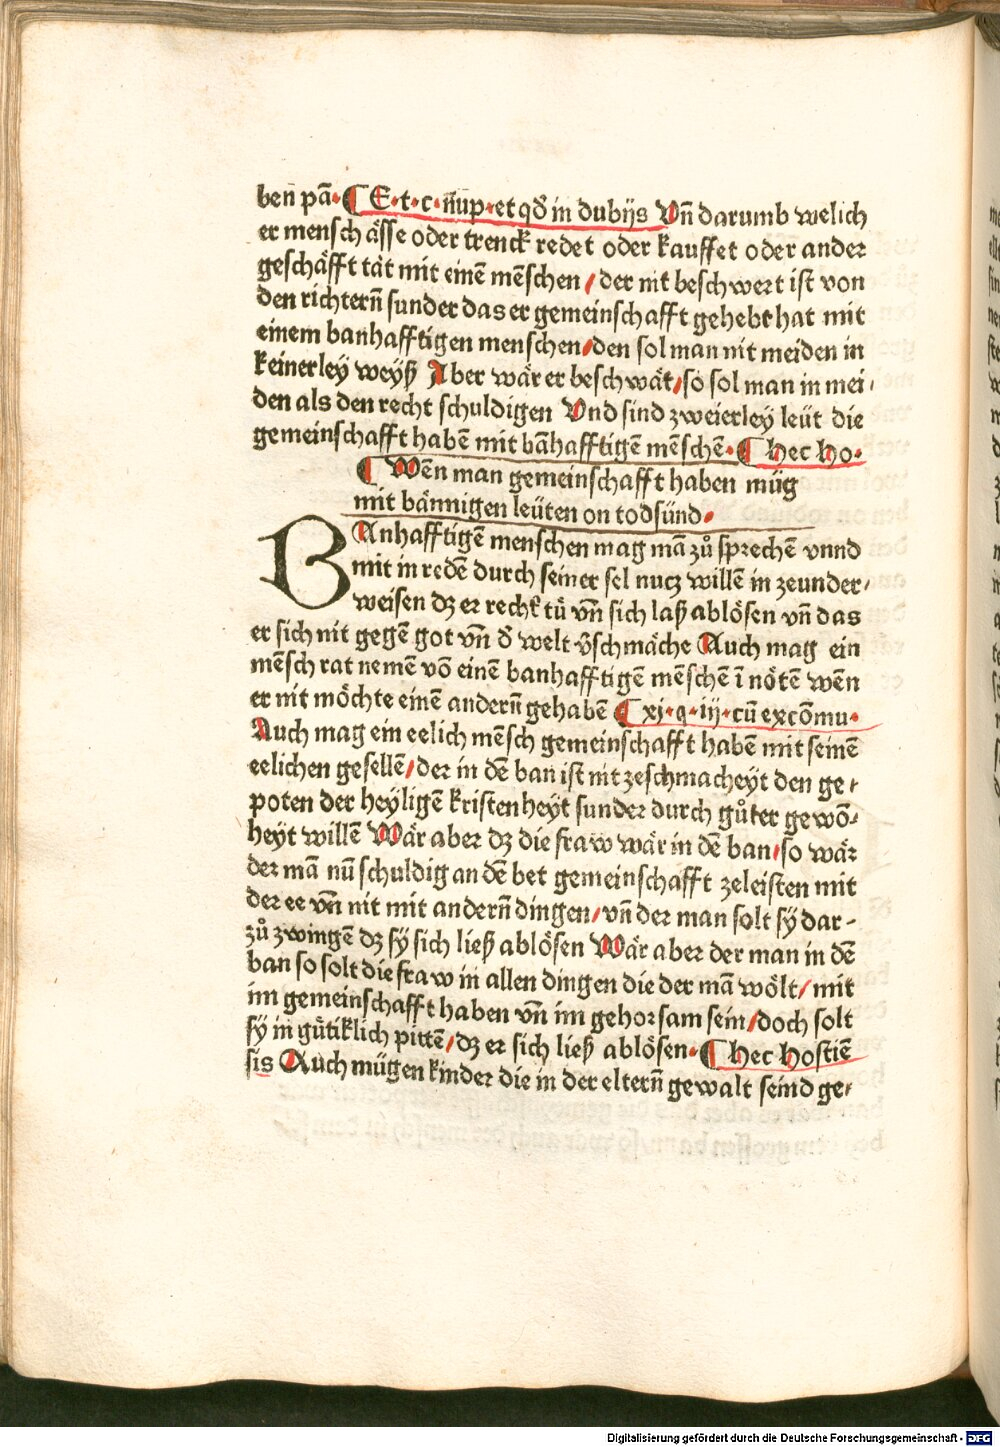 ben̄ pā· ¶ E·t·c·n̄up·et qð in dubijs Vn̄ darumb welich
er mensch ässe oder trenck redet oder kauffet oder ander
geschäfft tät mit einē mēschen / der nit beschwert ist von
den richterñ sunder das er gemeinschafft gehebt hat mit
einem banhafftigen menschen/den sol man nit meiden in
keinerley weyß Aber wär er beschwät/so sol man in mei/
den als den recht schuldigen Vnd sind zweierley leüt die
gemeinschafft habē mit bāhafftigē mēschē· ¶ hec ho·
¶ Wēn man gemeinschafft haben müg
mit bännigen leüten on todsünd·
BAnhafftigē menschen mag mā zů sprechē vnnd
mit in redē durch seiner sel nucz willē in zeunder/
weisen dz er recht tü vn̄ sich laß ablösen vn̄ das
er sich nit gegē got vn̄ d̄ welt v̄schmäche Auch mag ein
mēsch rat nemē vō einē banhafftigē mēschē ī nötē wēn
er nit möchte einē anderñ gehabē ¶ xj·q·iij·cū excōmu·
Auch mag ein eelich mēsch gemeinschafft habē mit seinē
eelichen gesellē/der in dē ban ist nit zeschmacheyt den ge/
poten der heyligē kristenheyt sunder durch gůter gewō/
heyt willē Wär aber dz die fraw wär in dē ban/so wär
der mā nū schuldig an dē bet gemeinschafft zeleisten mit
der ee vn̄ nit mit anderñ dingen/vn̄ der man solt sÿ dar-
zů zwingē dz sÿ sich ließ ablösen Wär aber der man in dē
ban so solt die fraw in allen dingen die der mā wölt/mit
im gemeinschafft haben vn̄ im gehorsam sein/doch solt
sÿ in gütiklich pittē/dz er sich ließ ablösen· ¶ hec hostiē
sis Auch mügen kinder die in der elterñ gewalt seind ge/
Digitalisierung gefördert durch die Deutsche Forschungsgemeinschaft - DFG